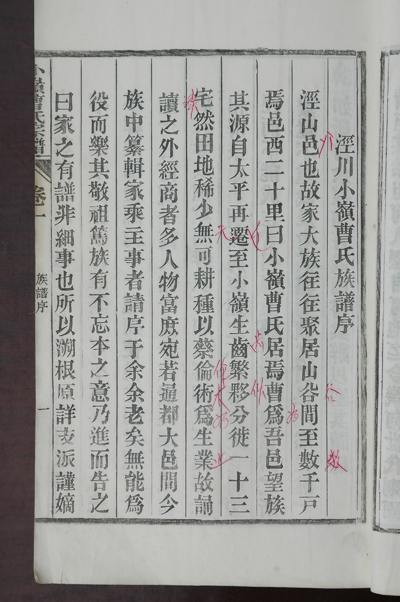 涇川小嶺曹氏族譜序
涇山邑也故家大族往往聚居山谷間至數千戸
焉邑西二十里曰小嶺曹氏居焉曹爲吾邑望族
其源自太平再遷至小嶺生齒繁夥分徙一十三
宅然田地稀少無可耕種以蔡倫術爲生業故誦
讀之外經商者多人物富庶宛若通都大邑間今
族中纂輯家乘主事者請序于余余老矣無能爲
役而樂其敬祖篤族有不忘本之意乃進而告之
曰家之有譜非細事也所以溯根原詳支派謹嫡
小嶺曹氏宗譜
卷一
族譜序
一